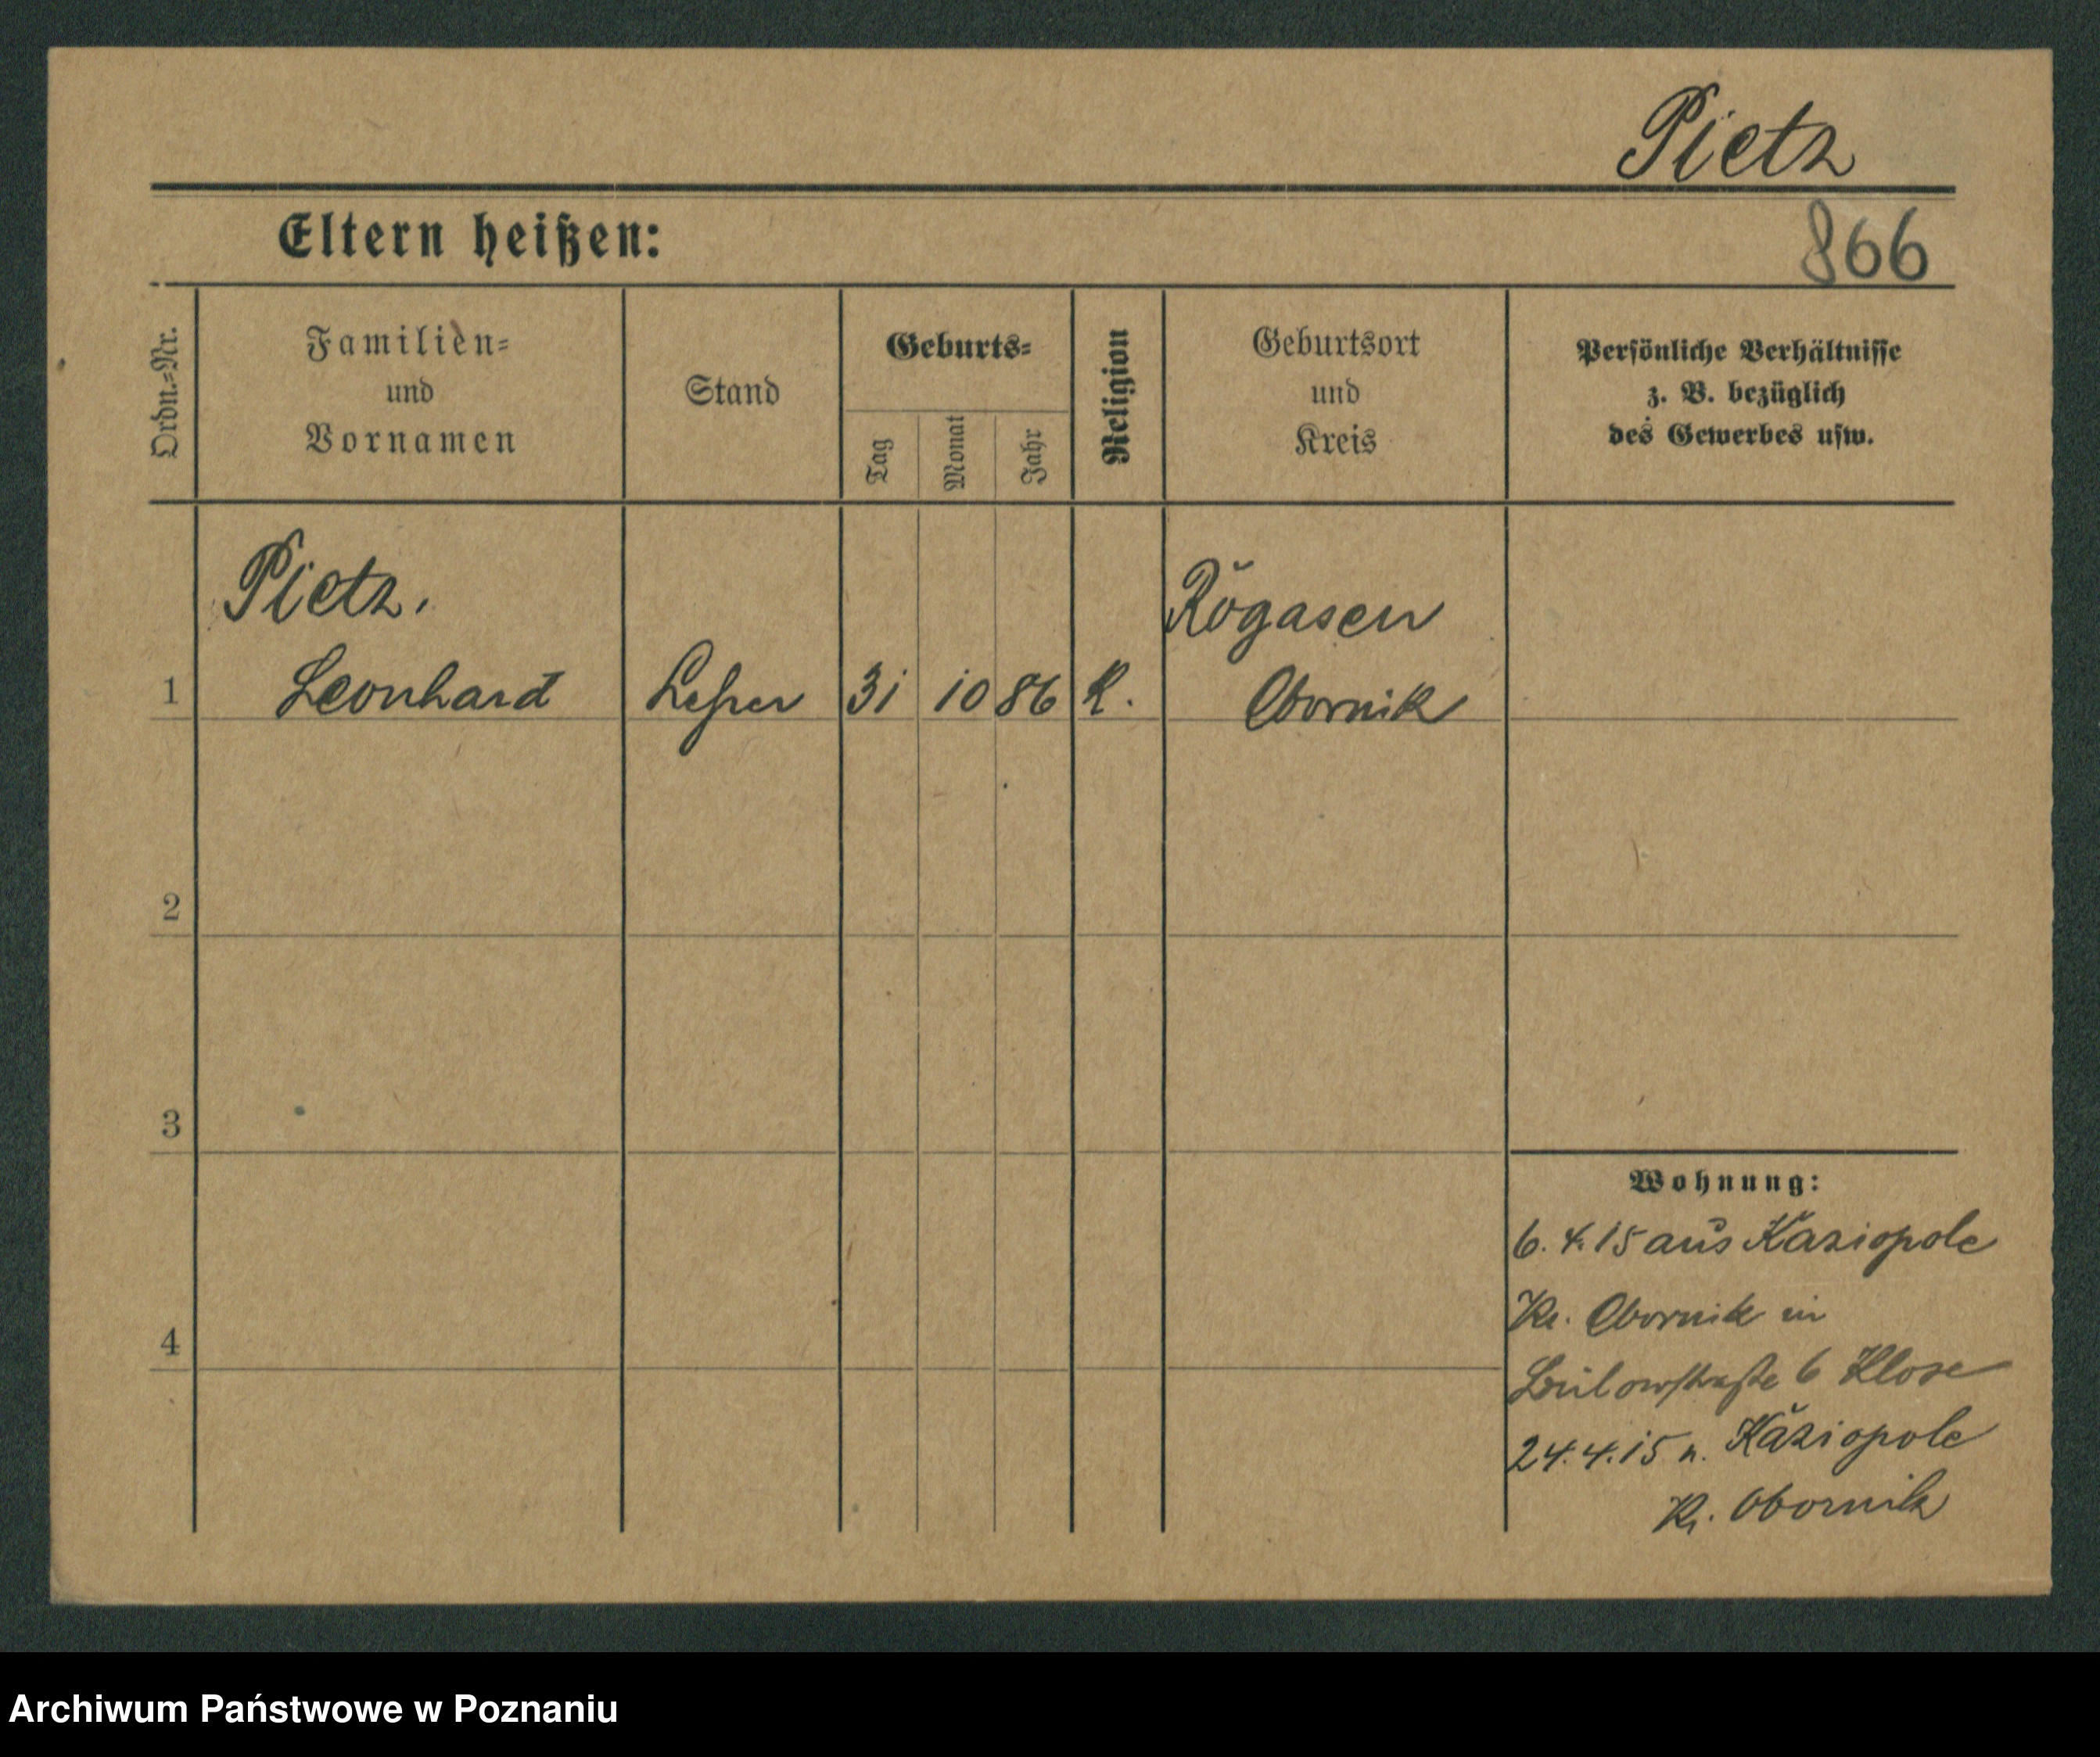 Pietz
Eltern heißen:
866
Ordn.=Nr.
Familien=
und
Vornamen
Stand
Geburts=
Tag
Monat
Jahr
Religion
Geburtsort
und
Kreis
Persönliche Verhältnisse
z. B. bezüglich
des Gewerbes usw.
Pietz.
Rogasen
1 Leonhard Lehrer 31 10 86 K. Obornik
2
3
4
Wohnung:
6.4.15 aus Kaziopole
Kr. Obornik in
Bülowstraße 6 Klose
24.4.15 n. Kaziopole
Kr. Obornik
Archiwum Państwowe w Poznaniu